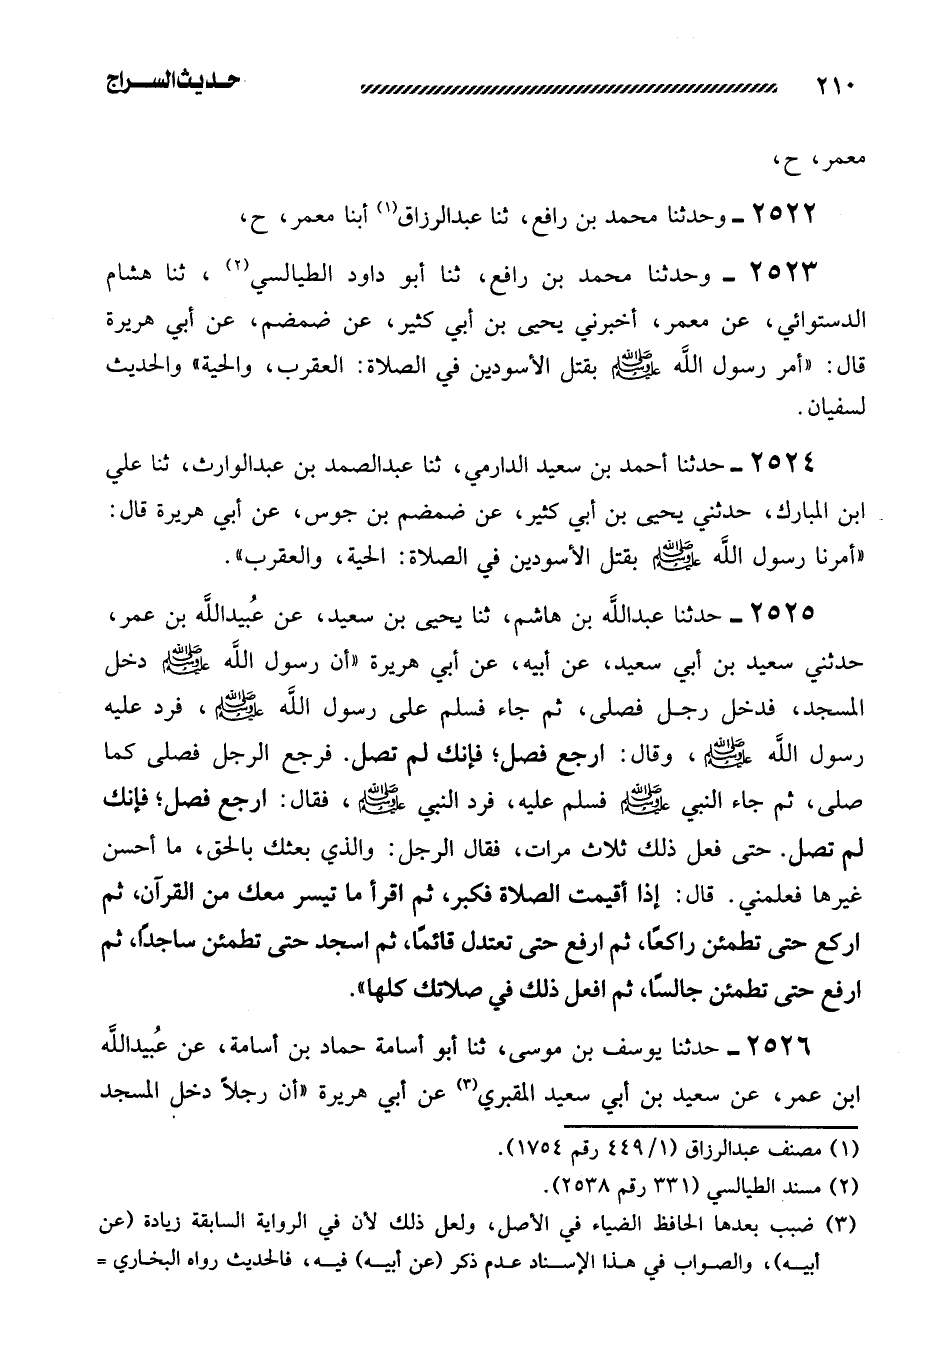 ٢١٠ حديث السراج
معمر، ح،
٢٥٢٢ ـ وحدثنا محمد بن رافع، ثنا عبدالرزاق(١) أبنا معمر، ح،
٢٥٢٣ ـ وحدثنا محمد بن رافع، ثنا أبو داود الطيالسي(٢) ، ثنا هشام
الدستوائي، عن معمر، أخبرني يحيى بن أبي كثير، عن ضمضم، عن أبي هريرة
قال: «أمر رسول اللَّه ﷺ بقتل الأسودين في الصلاة: العقرب، والحية» والحديث
لسفيان.
٢٥٢٤ ـ حدثنا أحمد بن سعيد الدارمي، ثنا عبدالصمد بن عبدالوارث، ثنا علي
ابن المبارك، حدثني يحيى بن أبي كثير، عن ضمضم بن جوس، عن أبي هريرة قال:
«أمرنا رسول اللَّه ﷺ بقتل الأسودين في الصلاة: الحية، والعقرب».
٢٥٢٥ ـ حدثنا عبداللَّه بن هاشم، ثنا يحيى بن سعيد، عن عُبيداللَّه بن عمر،
حدثني سعيد بن أبي سعيد، عن أبيه، عن أبي هريرة «أن رسول اللَّه ﷺ دخل
المسجد، فدخل رجل فصلى، ثم جاء فسلم على رسول اللَّه ﷺ ، فرد عليه
رسول اللَّه ﷺ ، وقال: ارجع فصل؛ فإنك لم تصل. فرجع الرجل فصلى كما
صلى، ثم جاء النبي ﷺ فسلم عليه، فرد النبي ﷺ ، فقال: ارجع فصل؛ فإنك
لم تصل. حتى فعل ذلك ثلاث مرات، فقال الرجل: والذي بعثك بالحق، ما أحسن
غيرها فعلمني. قال: إذا أقيمت الصلاة فكبر، ثم اقرأ ما تيسر معك من القرآن، ثم
اركع حتى تطمئن راكعًا، ثم ارفع حتى تعتدل قائمًا، ثم اسجد حتى تطمئن ساجدًا، ثم
ارفع حتى تطمئن جالسًا، ثم افعل ذلك في صلاتك كلها».
٢٥٢٦ ـ حدثنا يوسف بن موسى، ثنا أبو أسامة حماد بن أسامة، عن عُبيداللَّه
ابن عمر، عن سعيد بن أبي سعيد المقبري(٣) عن أبي هريرة «أن رجلاً دخل المسجد
(١) مصنف عبدالرزاق (١/ ٤٤٩ رقم ١٧٥٤).
(٢) مسند الطيالسي (٣٣١ رقم ٢٥٣٨).
(٣) ضبب بعدها الحافظ الضياء في الأصل، ولعل ذلك لأن في الرواية السابقة زيادة (عن
أبيه)، والصواب في هذا الإسناد عدم ذكر (عن أبيه) فيه، فالحديث رواه البخاري =